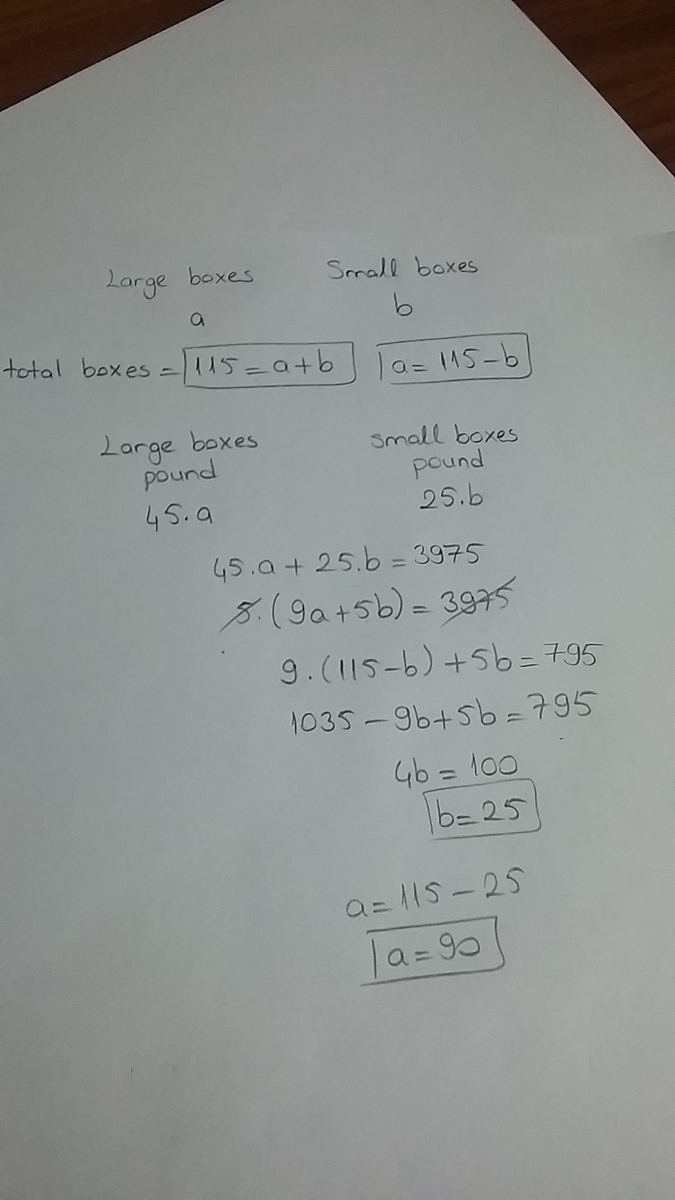 Large boxes Small boxes
a b
total boxes = 115 = a+b a = 115 - b
Large boxes small boxes
pound pound
45.a 25.b
45.a + 25.b = 3975
5.(9a+5b) = 3975
9.(115-b) + 5b = 795
1035 - 9b+5b = 795
4b = 100
b = 25
a = 115 - 25
a = 90